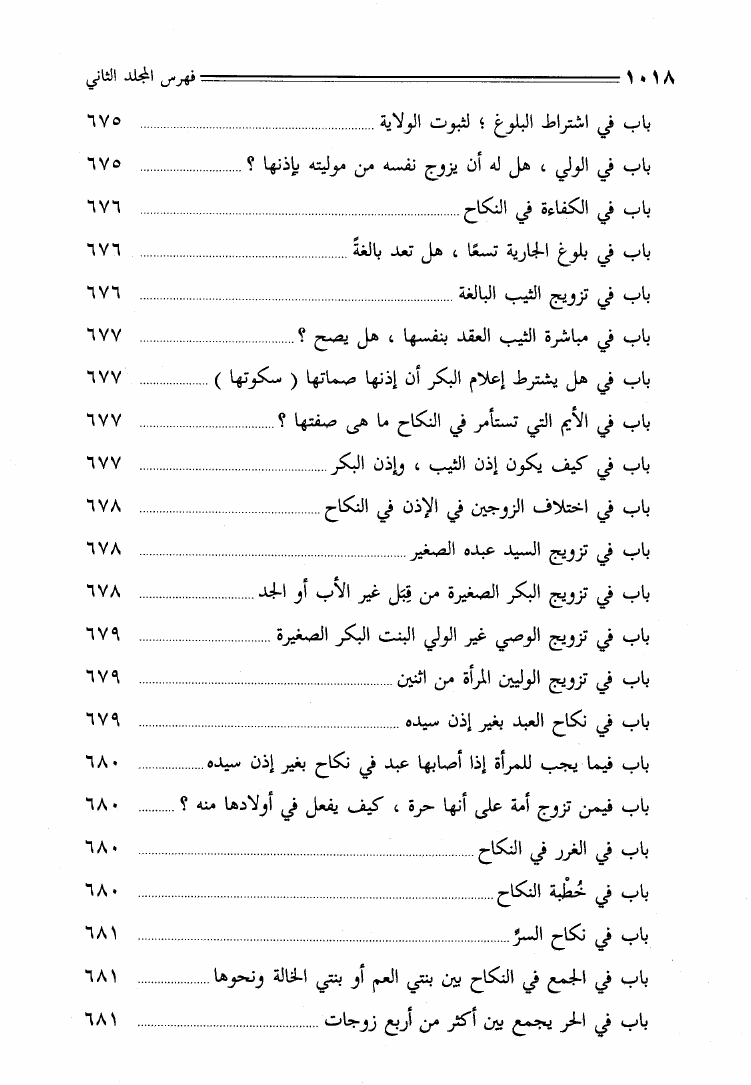 ١٠١٨ فهرس المجلد الثاني
باب في اشتراط البلوغ ؛ لثبوت الولاية ٦٧٥
باب في الولي ، هل له أن يزوج نفسه من موليته بإذنها ؟ ٦٧٥
باب في الكفاءة في النكاح ٦٧٦
باب في بلوغ الجارية تسعًا ، هل تعد بالغةً ٦٧٦
باب في تزويج الثيب البالغة ٦٧٦
باب في مباشرة الثيب العقد بنفسها ، هل يصح ؟ ٦٧٧
باب في هل يشترط إعلام البكر أن إذنها صماتها ( سكوتها ) ٦٧٧
باب في الأيم التي تستأمر في النكاح ما هى صفتها ؟ ٦٧٧
باب في كيف يكون إذن الثيب ، وإذن البكر ٦٧٧
باب في اختلاف الزوجين في الإذن في النكاح ٦٧٨
باب في تزويج السيد عبده الصغير ٦٧٨
باب في تزويج البكر الصغيرة من قِبَل غير الأب أو الجد ٦٧٨
باب في تزويج الوصي غير الولي البنت البكر الصغيرة ٦٧٩
باب في تزويج الوليين المرأة من اثنين ٦٧٩
باب في نكاح العبد بغير إذن سيده ٦٧٩
باب فيما يجب للمرأة إذا أصابها عبد في نكاح بغير إذن سيده ٦٨٠
باب فيمن تزوج أمة على أنها حرة ، كيف يفعل في أولادها منه ؟ ٦٨٠
باب في الغرر في النكاح ٦٨٠
باب في خُطْبة النكاح ٦٨٠
باب في نكاح السرِّ ٦٨١
باب في الجمع في النكاح بين بنتي العم أو بنتي الخالة ونحوها ٦٨١
باب في الحر يجمع بين أكثر من أربع زوجات ٦٨١